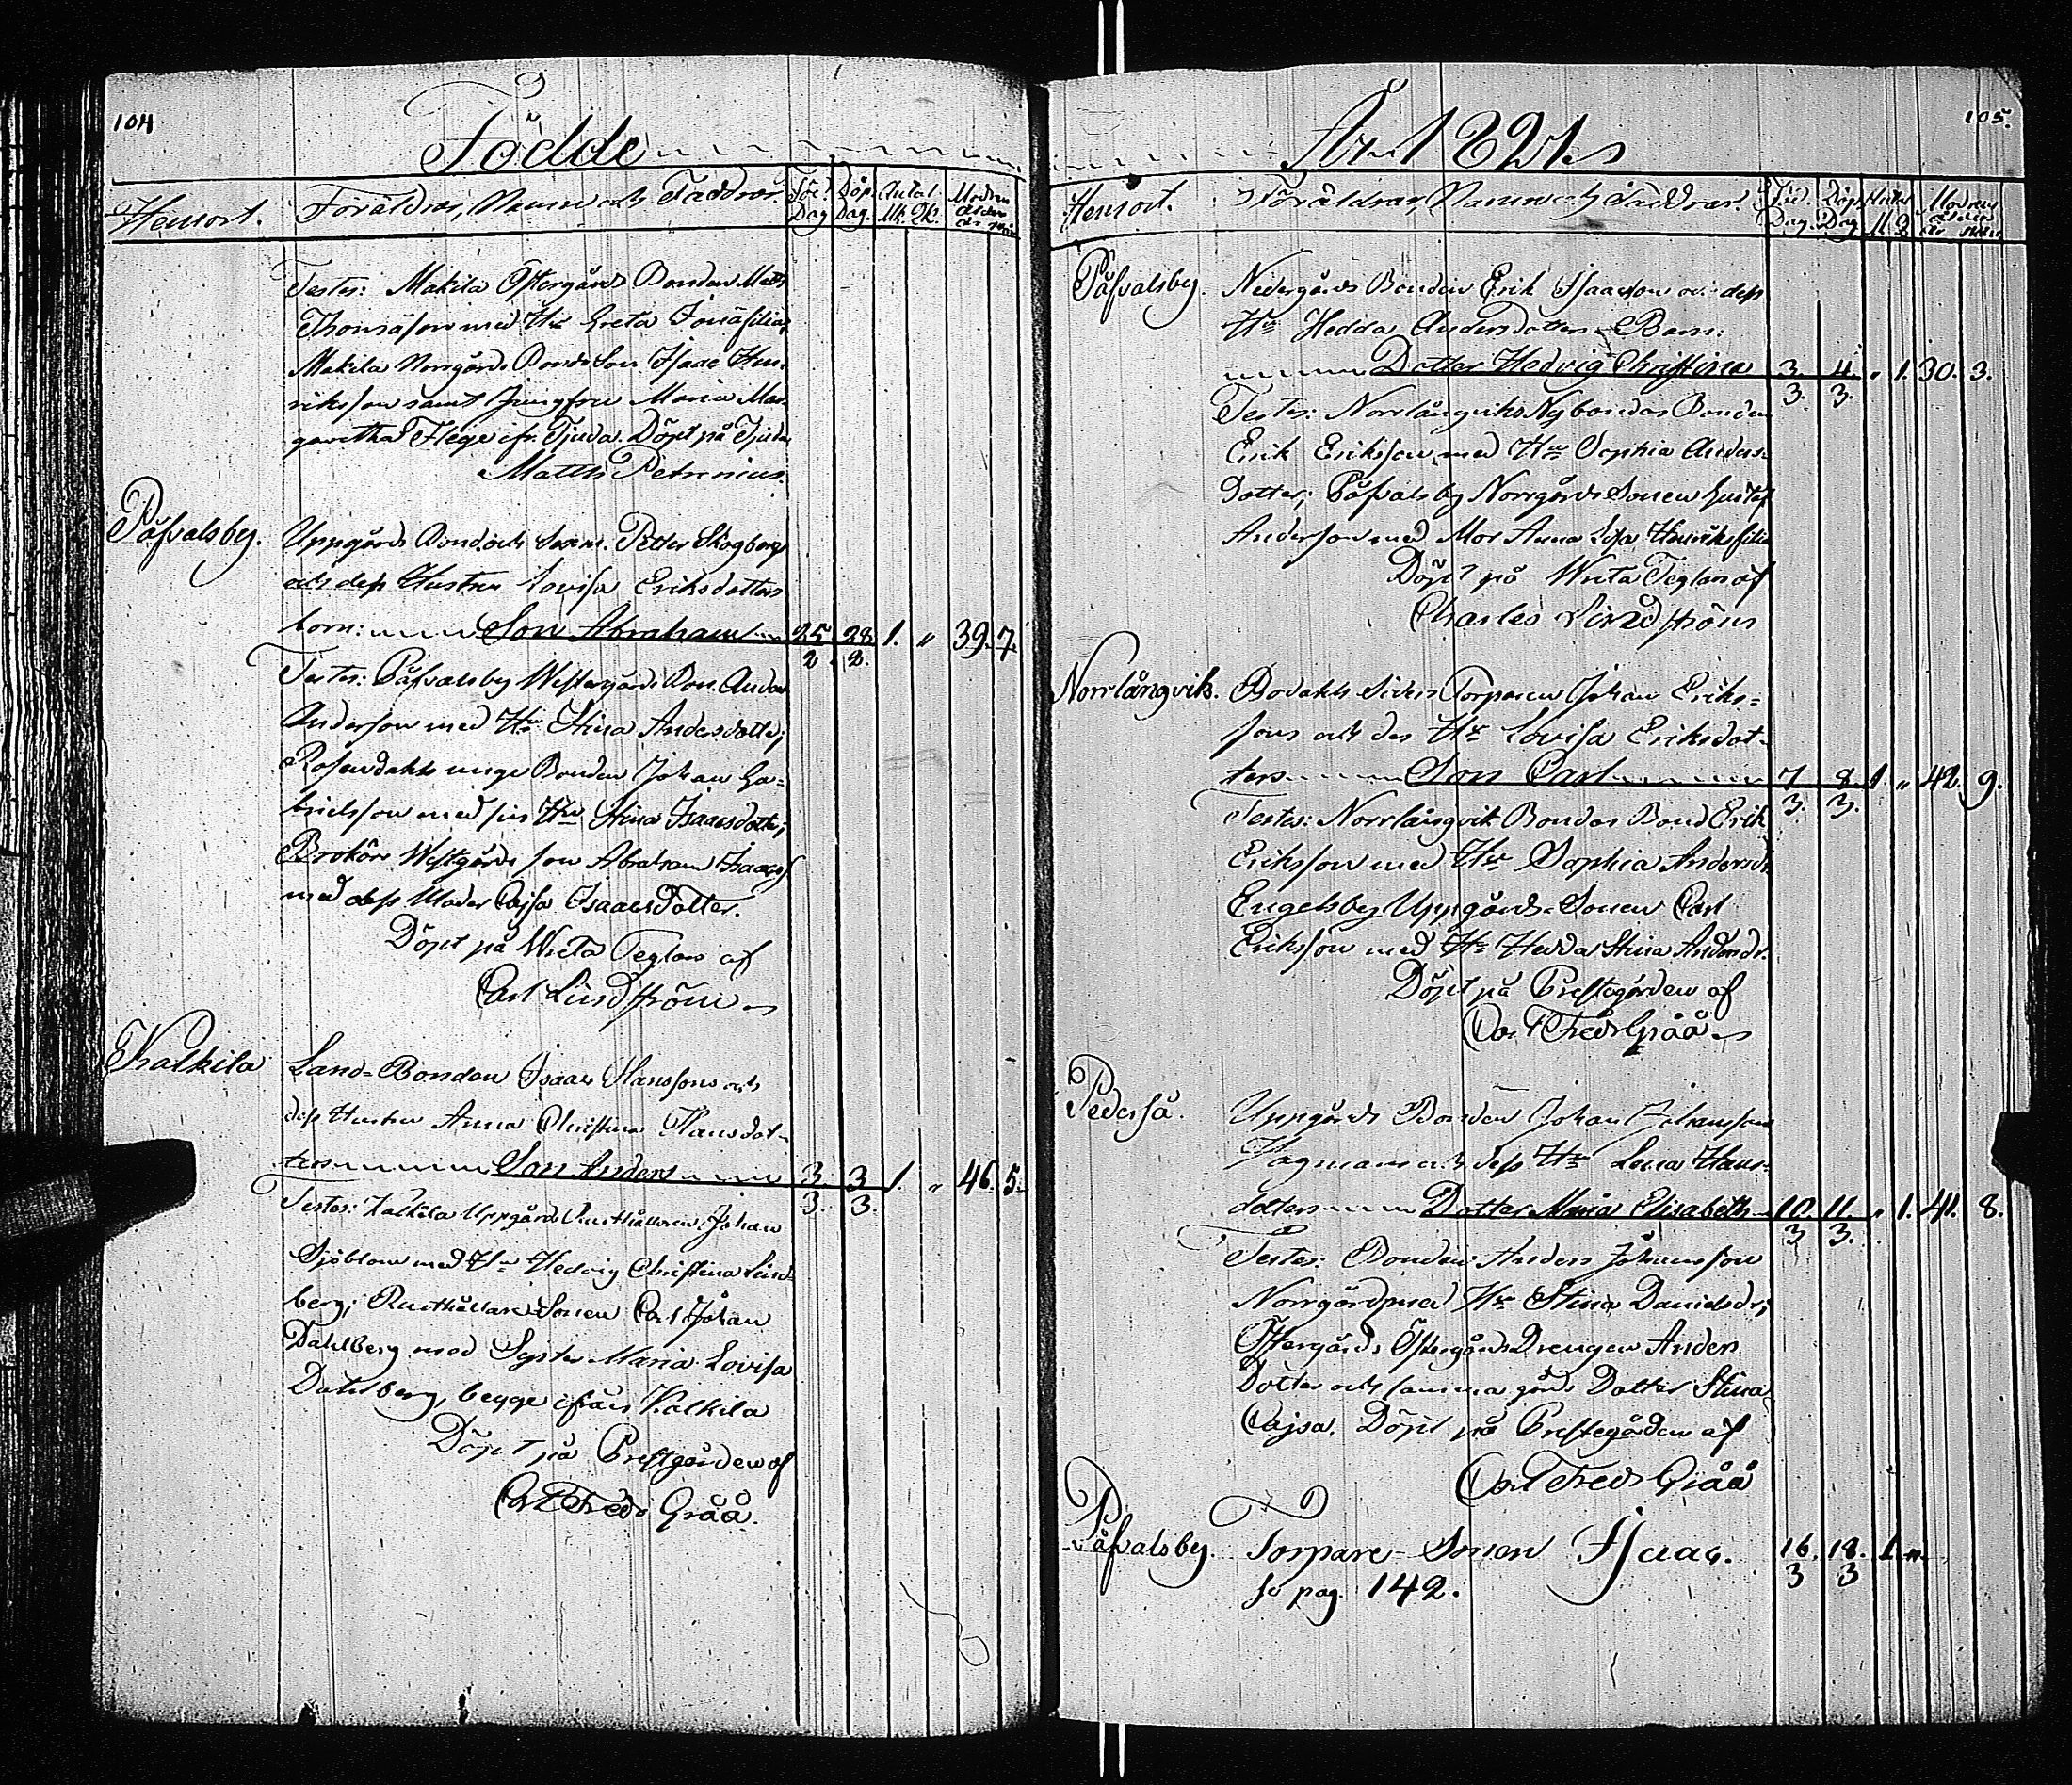 104
Födde
Hemort. Föräldrar, Namn och Faddrar. Föd. Dag Döp. Dag. Antal Mk. Qk. Modrens ålder år mån.
Testes: Makila Östergårds Bonden Matts
Thomasson med Hu Greta Jonæfilia,
Makila Norrgårds Bonde Son Isaac Hen-
riksson samt Jungfru Maria Mar-
garetha Flege ifr. Tjuda. Döpt på Tjuda
Matth Petrenius.
Påfvalsby. Uppgårds Bond och Petter Skogbergs
och dess Hustru Lovisa Eriksdotters
born: Son Abraham 25/2 28/2. 1. " 39. 7.
Testes: Påfvalsby Westergårds Bon. Anders
Andersson med Hu Stina Andersdotter;
Rosendahls unge Bonden Johan Ga-
brielsson med sin Hu Stina Isaacsdotter;
Brokärr Westgårds son Abraham Isaacss
med dess Moder Cajsa Isaacsdotter.
Döpt på Wreta Teglar af
Carl Lindström
Kalkila Land-Bonden Isaac Hanssons och
dess Hustru Anna Christina Hansdot-
ters Son Anders 3/3. 3/3. 1. " 46. 5.
Testes: Kalkila Uppgårds Rusthållaren Johan
Sjöblom med Hu Hedvig Christina Lind-
berg; Rusthållare Sonen Carl Johan
Dahlberg med Syster Maria Lovisa
Dahlberg, begge ifrån Kalkila
Döpt på Prestgården af
Carl Fredr Gråå.
105.
År 1821
Hemort. Föräldrar, Namn och Faddrar. Föd. Dag. Döps Dag Antal M. Q. Modrens ålder år mån
Påfvalsby. Nedergårds Bonden Erik Isaacsons och dess
Hu Hedda Andersdotters Barn:
Dotter Hedvig Christina 3/3. 4/3. " 1. 30. 3.
Testes: Norrlångviks Nybondas Bonden
Erik Eriksson med Hu Sophia Anders-
dotter; Påfvalsby Norrgårds Sonen Gustaf
Andersson med Mor Anna Lisa Henriksfilia
Döpt på Wreta Teglar af
Charles Lindström
Norrlångvik. Bodahls Torparen Johan Eriks-
sons och des Hu Lovisa Eriksdot-
ters Son Carl 7/3. 8/3. 1. " 42. 9.
Testes: Norrlångvik Bondas Bond Erik
Eriksson med Hu Sophia Andersdr
Engelsby Uppgårds-Sonen Carl
Eriksson med Hu Hedda Stina Andersdr.
Döpt på Prestegården af
Carl Fredr Gråå
Pederså. Uppgårds Bonden Johan Johansson
Hagmans och dess Hu Lena Hans-
dotters Dotter Maria Elisabeth 10/3 11/3. " 1. 41. 8.
Testes: Bonden Anders Johansson
Norrgård med Hu Stina Danielsdr;
Östergårds Östergårds Drengen Anders
Dotter och samma gårds Dotter Stina
Cajsa. Döpt på Prestegården af
Carl Fredr Gråå
Påfvalsby. Torpare-Sonen Isaac. 16/3. 18/3. 1. "
se pag. 142.